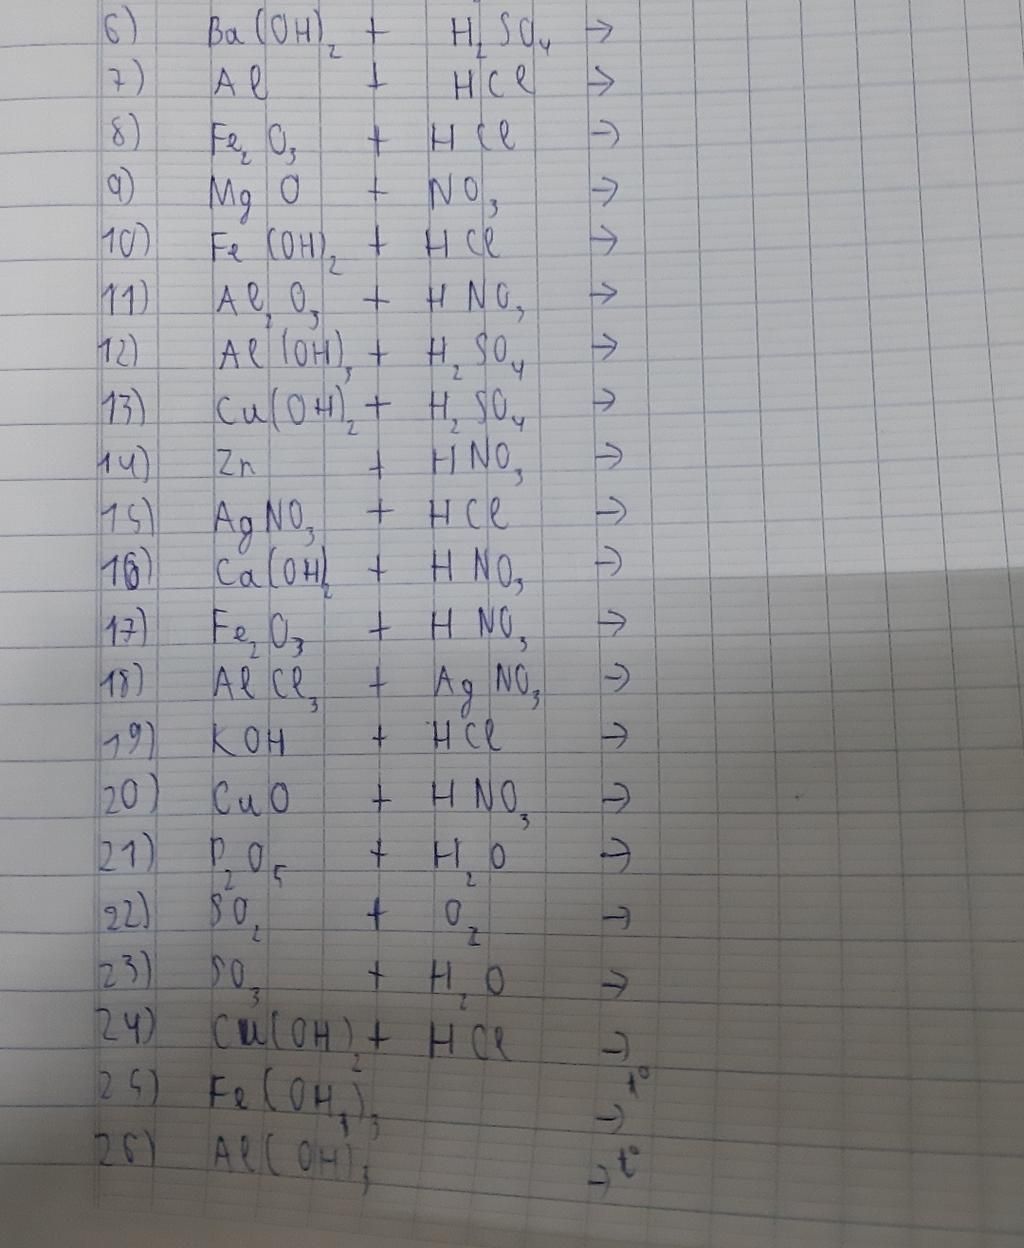 6) Ba(OH)₂ + H₂SO₄ →
7) Al + HCl →
8) Fe₂O₃ + HCl →
9) MgO + NO₃ →
10) Fe(OH)₂ + HCl →
11) Al₂O₃ + HNO₃ →
12) Al(OH)₃ + H₂SO₄ →
13) Cu(OH)₂ + H₂SO₄ →
14) Zn + HNO₃ →
15) AgNO₃ + HCl →
16) Ca(OH)₂ + HNO₃ →
17) Fe₂O₃ + HNO₃ →
18) AlCl₃ + AgNO₃ →
19) KOH + HCl →
20) CuO + HNO₃ →
21) P₂O₅ + H₂O →
22) SO₂ + O₂ →
23) SO₃ + H₂O →
24) Cu(OH)₂ + HCl →
25) Fe(OH)₃ → t°
26) Al(OH)₃ → t°